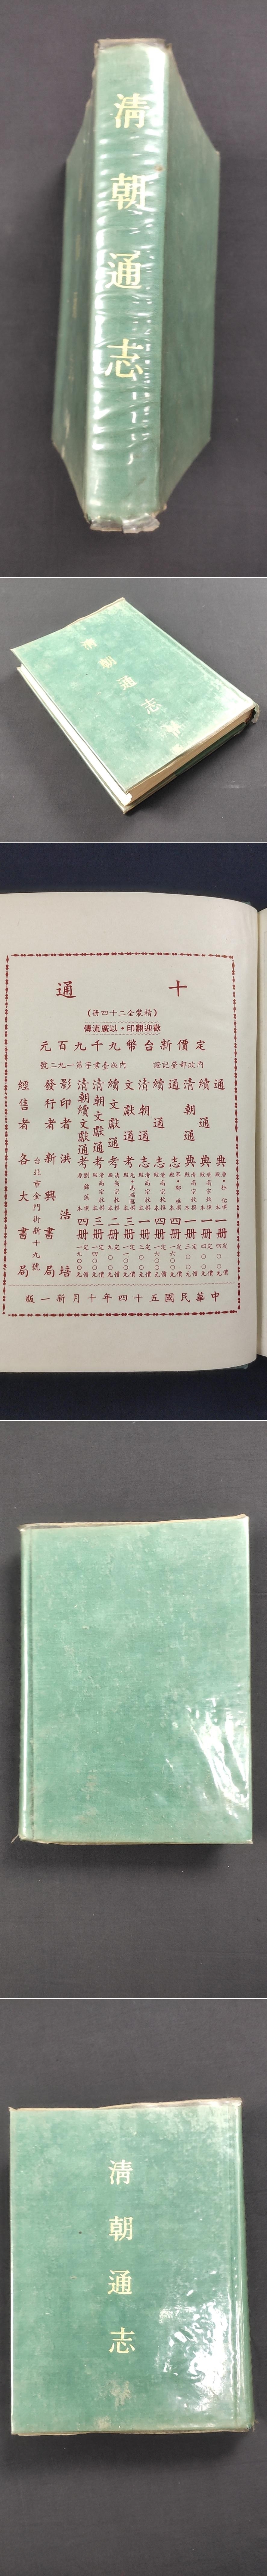 清朝通志
清朝通志
十通
(精裝全二十四冊)
歡迎翻印·以廣流傳
定價新台幣九千九百元
內政部登記證 內版臺業字第一九二號
通典
一冊
續通典
一冊
清朝通典
一冊
通志
四冊
續通志
四冊
清朝通志
一冊
文獻通考
三冊
續文獻通考
二冊
清朝文獻通考
三冊
清朝續文獻通考
四冊
影印者 洪浩培
發行者 新興書局
台北市金門街新十九號
經售者 各大書局
中華民國五十四年十月新一版
清朝通志